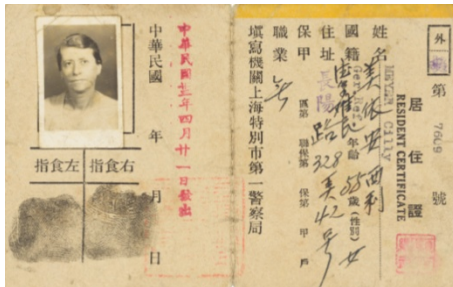 外
第 7609 號
居住證
RESIDENT CERTIFICATE
Cilly
姓名 美依安西利
國籍 年齡 55 歲 (性別) 女
住址 長陽路 328 弄 42 號
保甲 區第 聯保第 保第 甲 戶
職業 無
填寫機關上海特別市第一警察局
中華民國三三年四月廿一日發出
中華民國 年 月 日
指食左 指食右